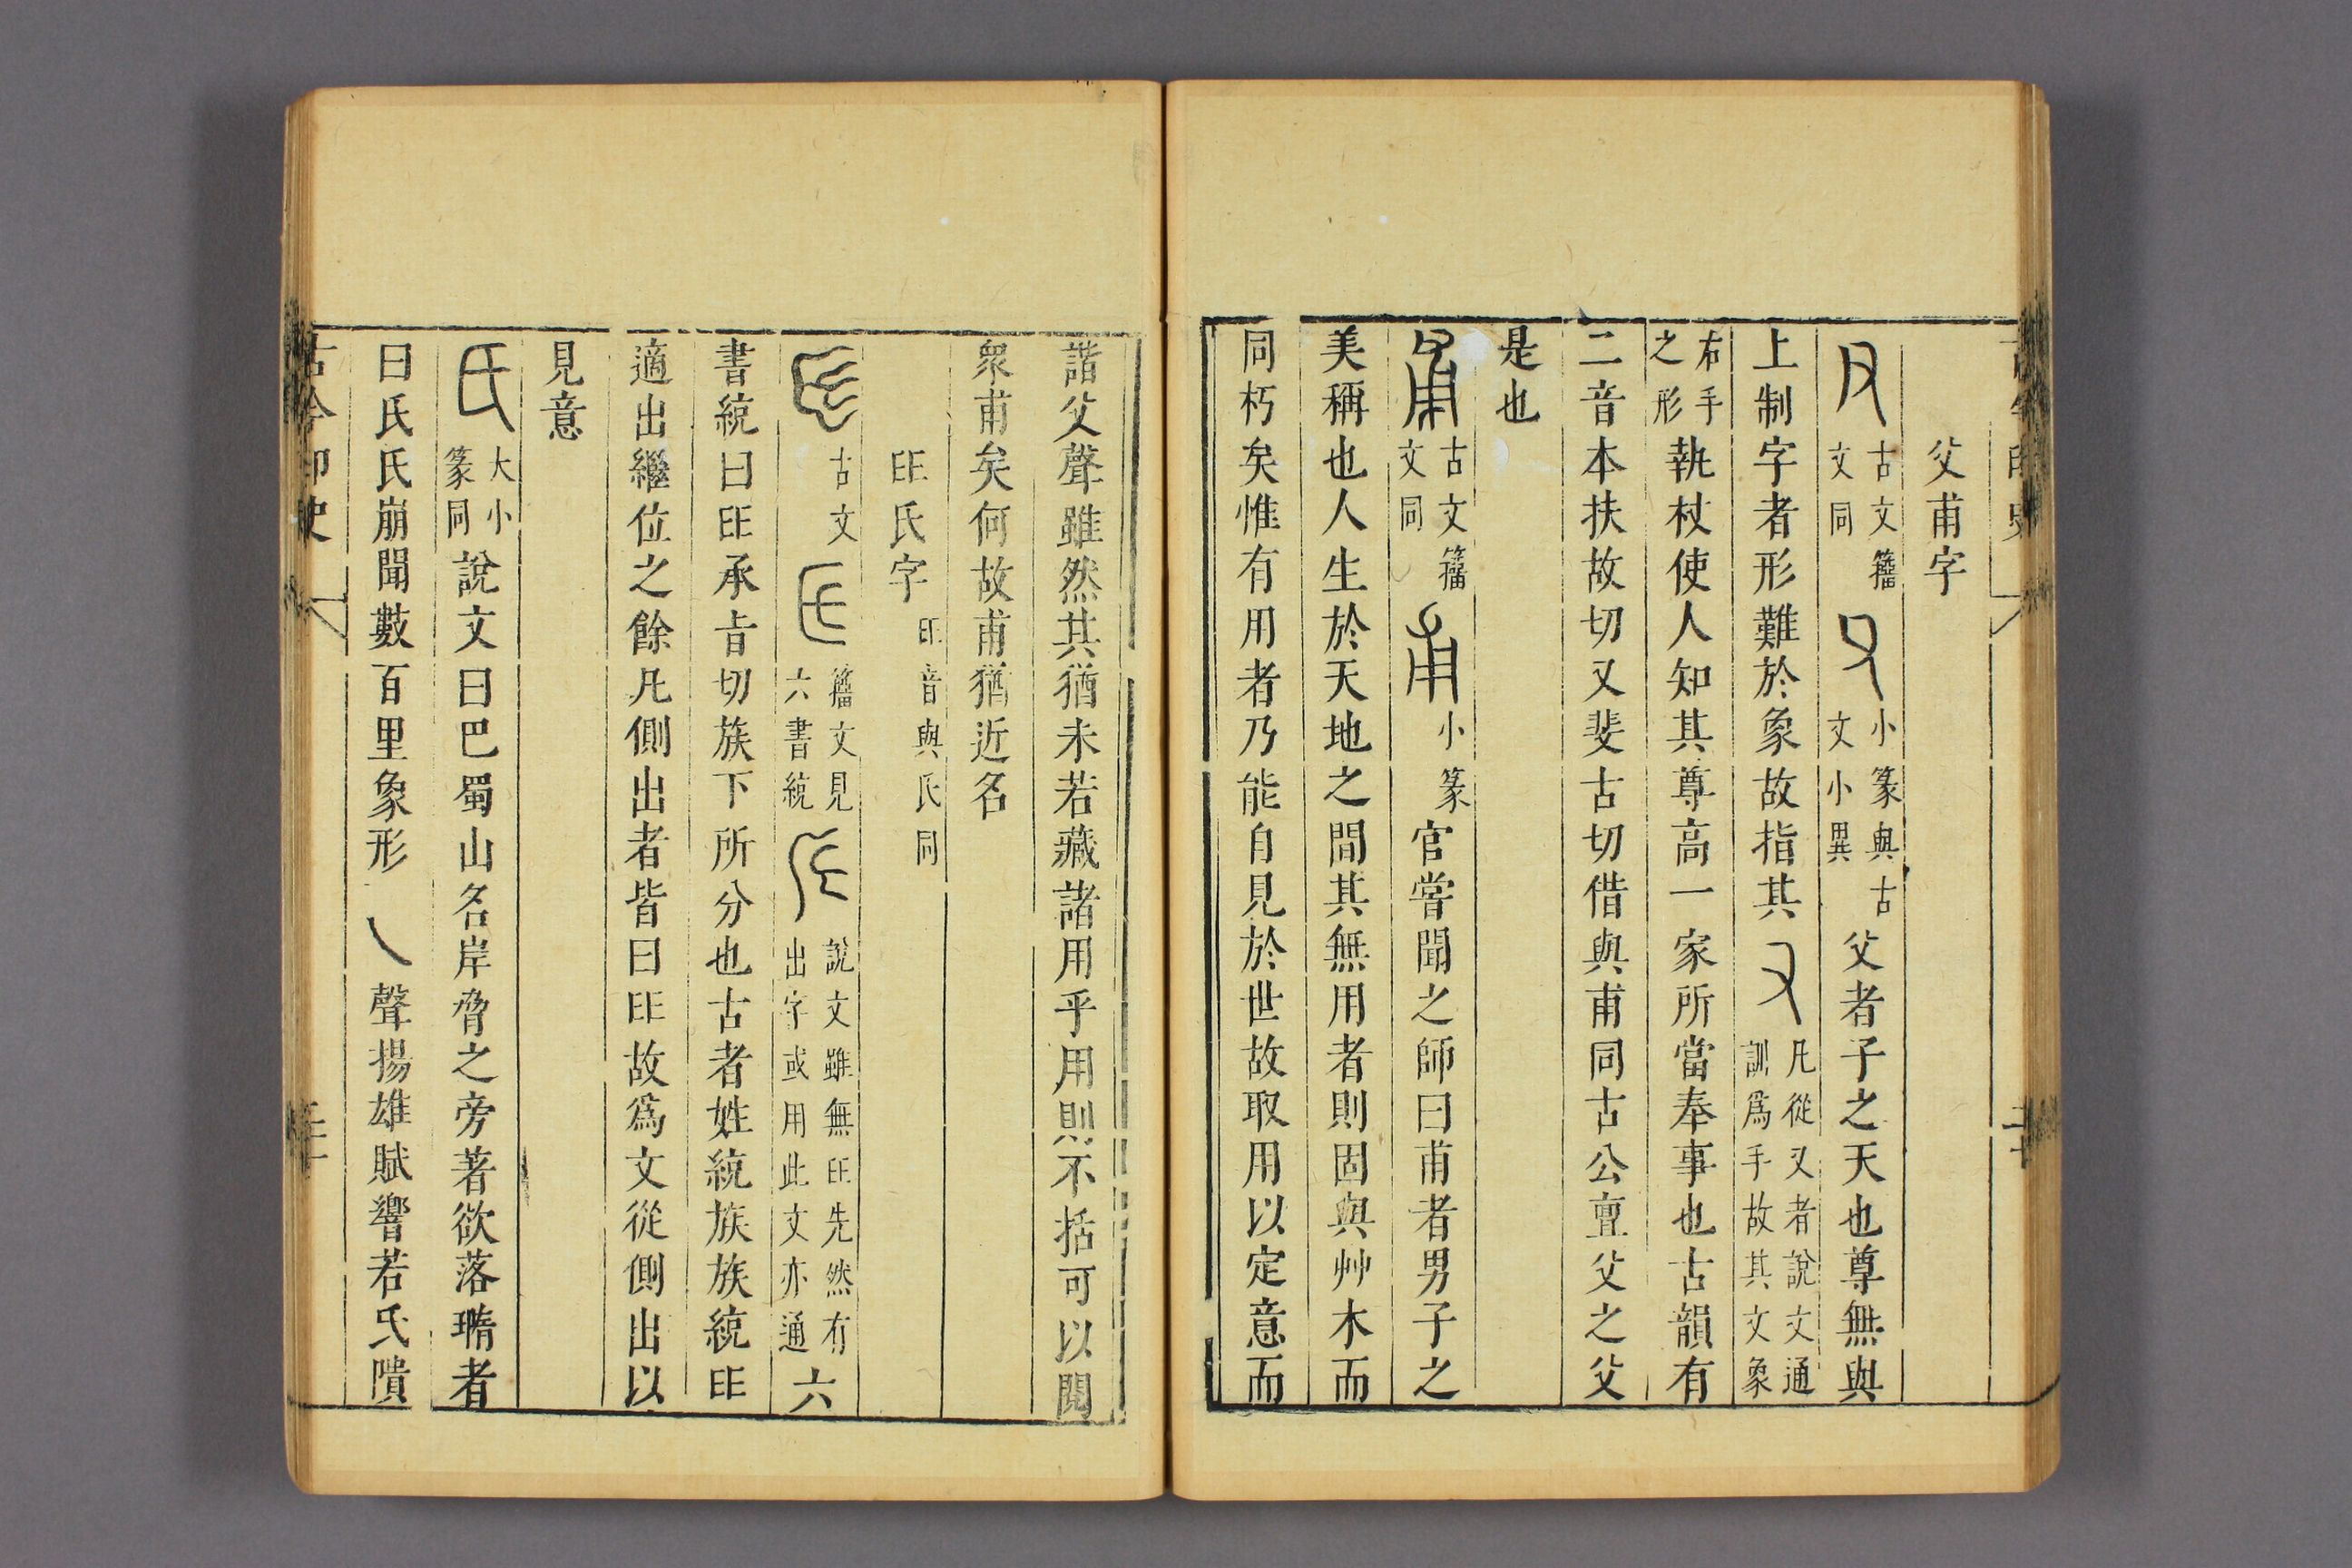 父甫字
古文籀文同 小篆與古文小異 父者子之天也尊無與
上制字者形難於象故指其又凡從又者說文通訓爲手故其文象
右手之形執杖使人知其尊高一家所當奉事也古韻有
二音本扶故切又斐古切借與甫同古公亶父之父
是也
古文籀文同 小篆 官嘗聞之師曰甫者男子之
美稱也人生於天地之間其無用者則固與艸木而
同朽矣惟有用者乃能自見於世故取用以定意而
諧父聲雖然其猶未若藏諸用乎用則不括可以閱
衆甫矣何故甫猶近名
氏字 音與氏同
古文 籀文見六書統 說文雖無先然有出字或用此文亦通 六
書統曰承旨切族下所分也古者姓統族族統
適出繼位之餘凡側出者皆曰故爲文從側出以
見意
氏大小篆同說文曰巴蜀山名岸脅之旁著欲落墮者
曰氏氏崩聞數百里象形乀聲揚雄賦響若氏隤
古今印史